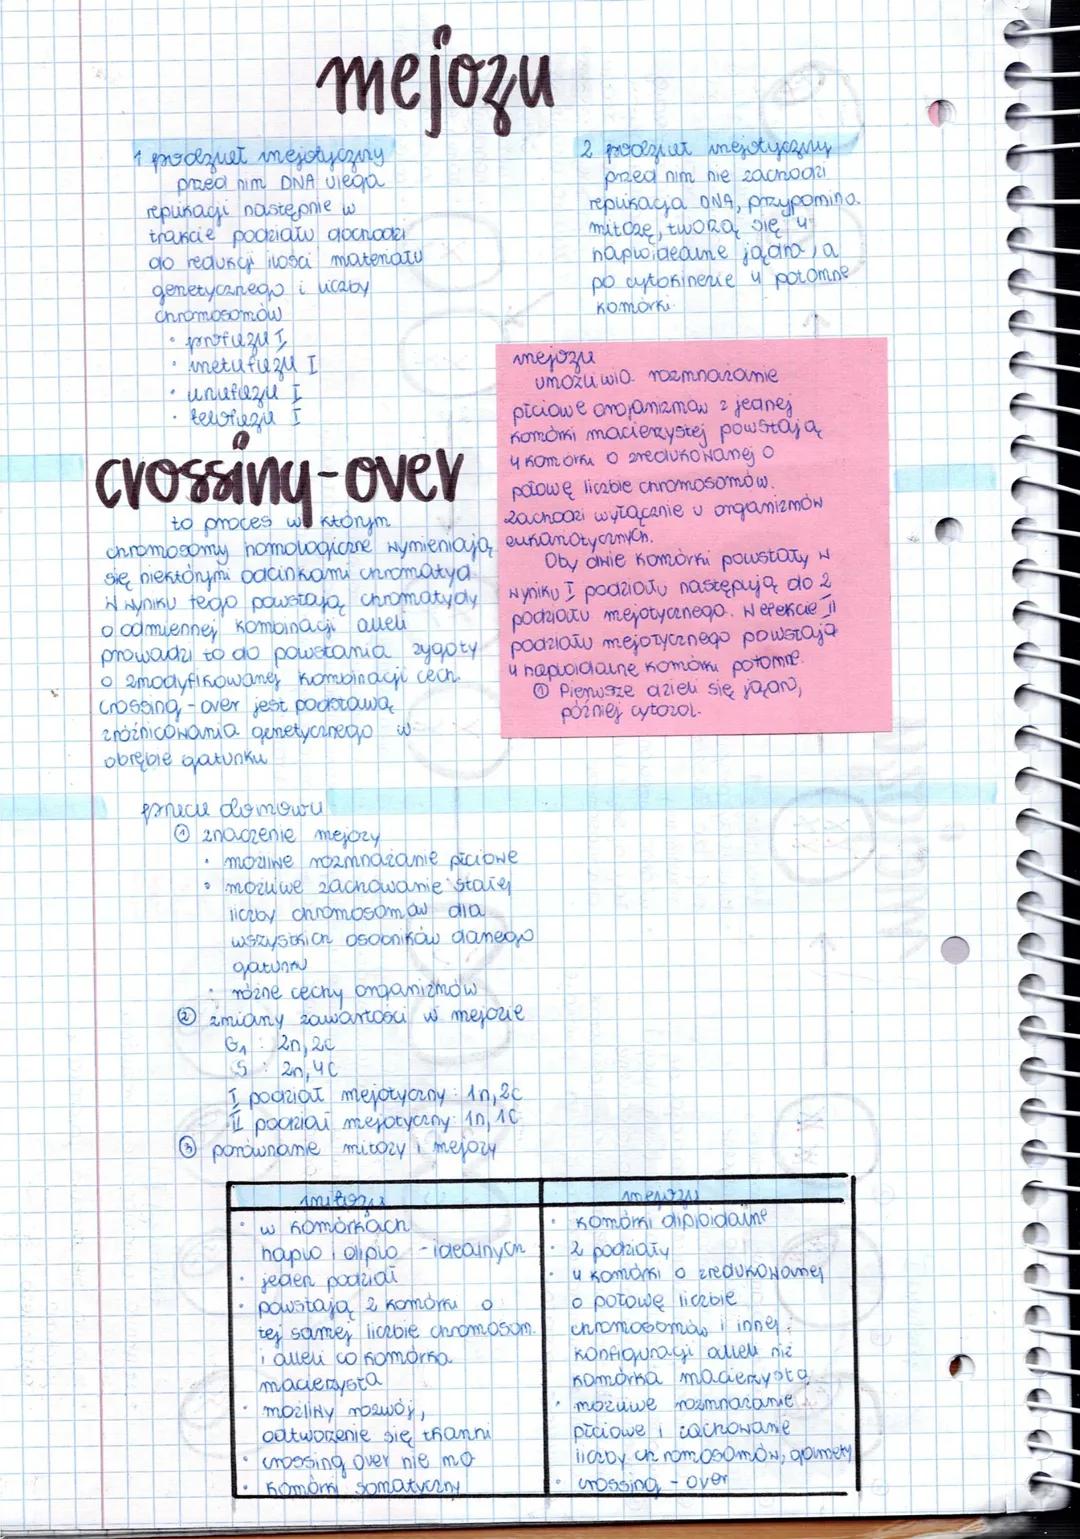 mejoza
1 podział mejotyczny
przed nim DNA ulega
replikacji następnie w
trakcie podziału dochodzi
do redukcji ilości materiału
genetycznego i liczby
chromosomów
• profaza I
• metafaza I
• anafaza I
• telofaza I
2 podział mejotyczny
przed nim nie zachodzi
replikacja DNA, przypomina
mitozę, tworzą się 4
haploidealne jądra, a
po cytokinezie 4 potomne
komórki
mejoza
umożliwia rozmnażanie
płciowe organizmów z jednej
komórki macierzystej powstają
4 komórki o zredukowanej o
połowę liczbie chromosomów.
Zachodzi wyłącznie u organizmów
eukariotycznych.
Oby dwie komórki powstały w
wyniku I podziału następują do 2
podziału mejotycznego. W efekcie II
podziału mejotycznego powstają
4 haploidalne komórki potomne.
① Pierwsze dzieli się jądro,
później cytozol.
crossing-over
to proces w którym
chromosomy homologiczne wymieniają
się niektórymi odcinkami chromatyd
W wyniku tego powstają chromatydy
o odmiennej kombinacji alleli
prowadzi to do powstania zygoty
o zmodyfikowanej kombinacji cech.
crossing-over jest podstawą
zróżnicowania genetycznego w
obrębie gatunku
praca domowa
① znaczenie mejozy
• możliwe rozmnażanie płciowe
• możliwe zachowanie stałej
liczby chromosomów dla
wszystkich osobników danego
gatunku
• różne cechy organizmów
② zmiany zawartości w mejozie
G1 : 2n, 2c
S : 2n, 4c
I podział mejotyczny: 1n, 2c
II podział mejotyczny: 1n, 1c
③ porównanie mitozy i mejozy
mitoza
• w komórkach
haplo i diplo - idealnych
• jeden podział
• powstają 2 komórki o
tej samej liczbie chromosom.
i alleli co komórka
macierzysta
• możliwy rozwój,
odtworzenie się tkanki
• crossing over nie ma
• komórki somatyczny
mejoza
• komórki diploidalne
• 2 podziały
• 4 komórki o zredukowanej
o połowę liczbie
chromosomów i innej
konfiguracji alleli niż
komórka macierzysta
• możliwe rozmnażanie
płciowe i zachowanie
liczby chromosomów, gamety
• crossing - over